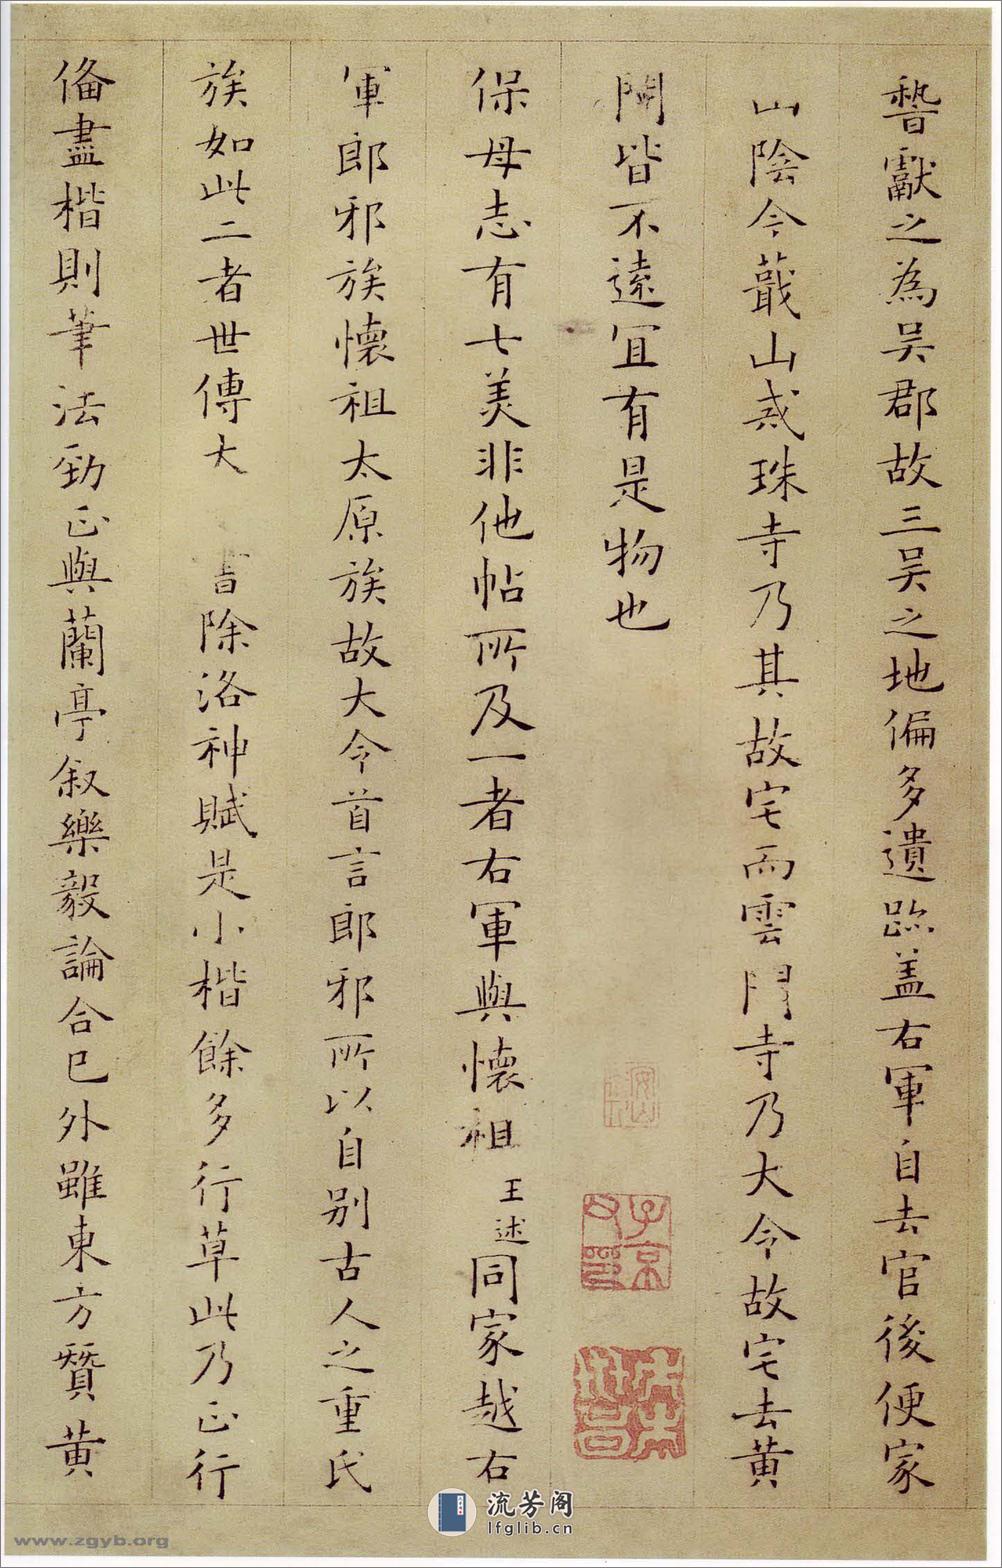 獻之為吳郡故三吳之地偏多遺跡蓋右軍自去官後便家
山陰今蕺山戒珠寺乃其故宅而雲門寺乃大令故宅去黃
閍皆不遠宜有是物也
保母志有七美非他帖所及一者右軍與懷祖王述同家越右
軍郎邪族懷祖太原族故大令首言郎邪所以自別古人之重氏
族如此二者世傳大 書除洛神賦是小楷餘多行草此乃正行
俻盡楷則筆法勁正與蘭亭叙樂毅論合已外雖東方贊黃
流芳阁
lfglib.cn
www.zgyb.org